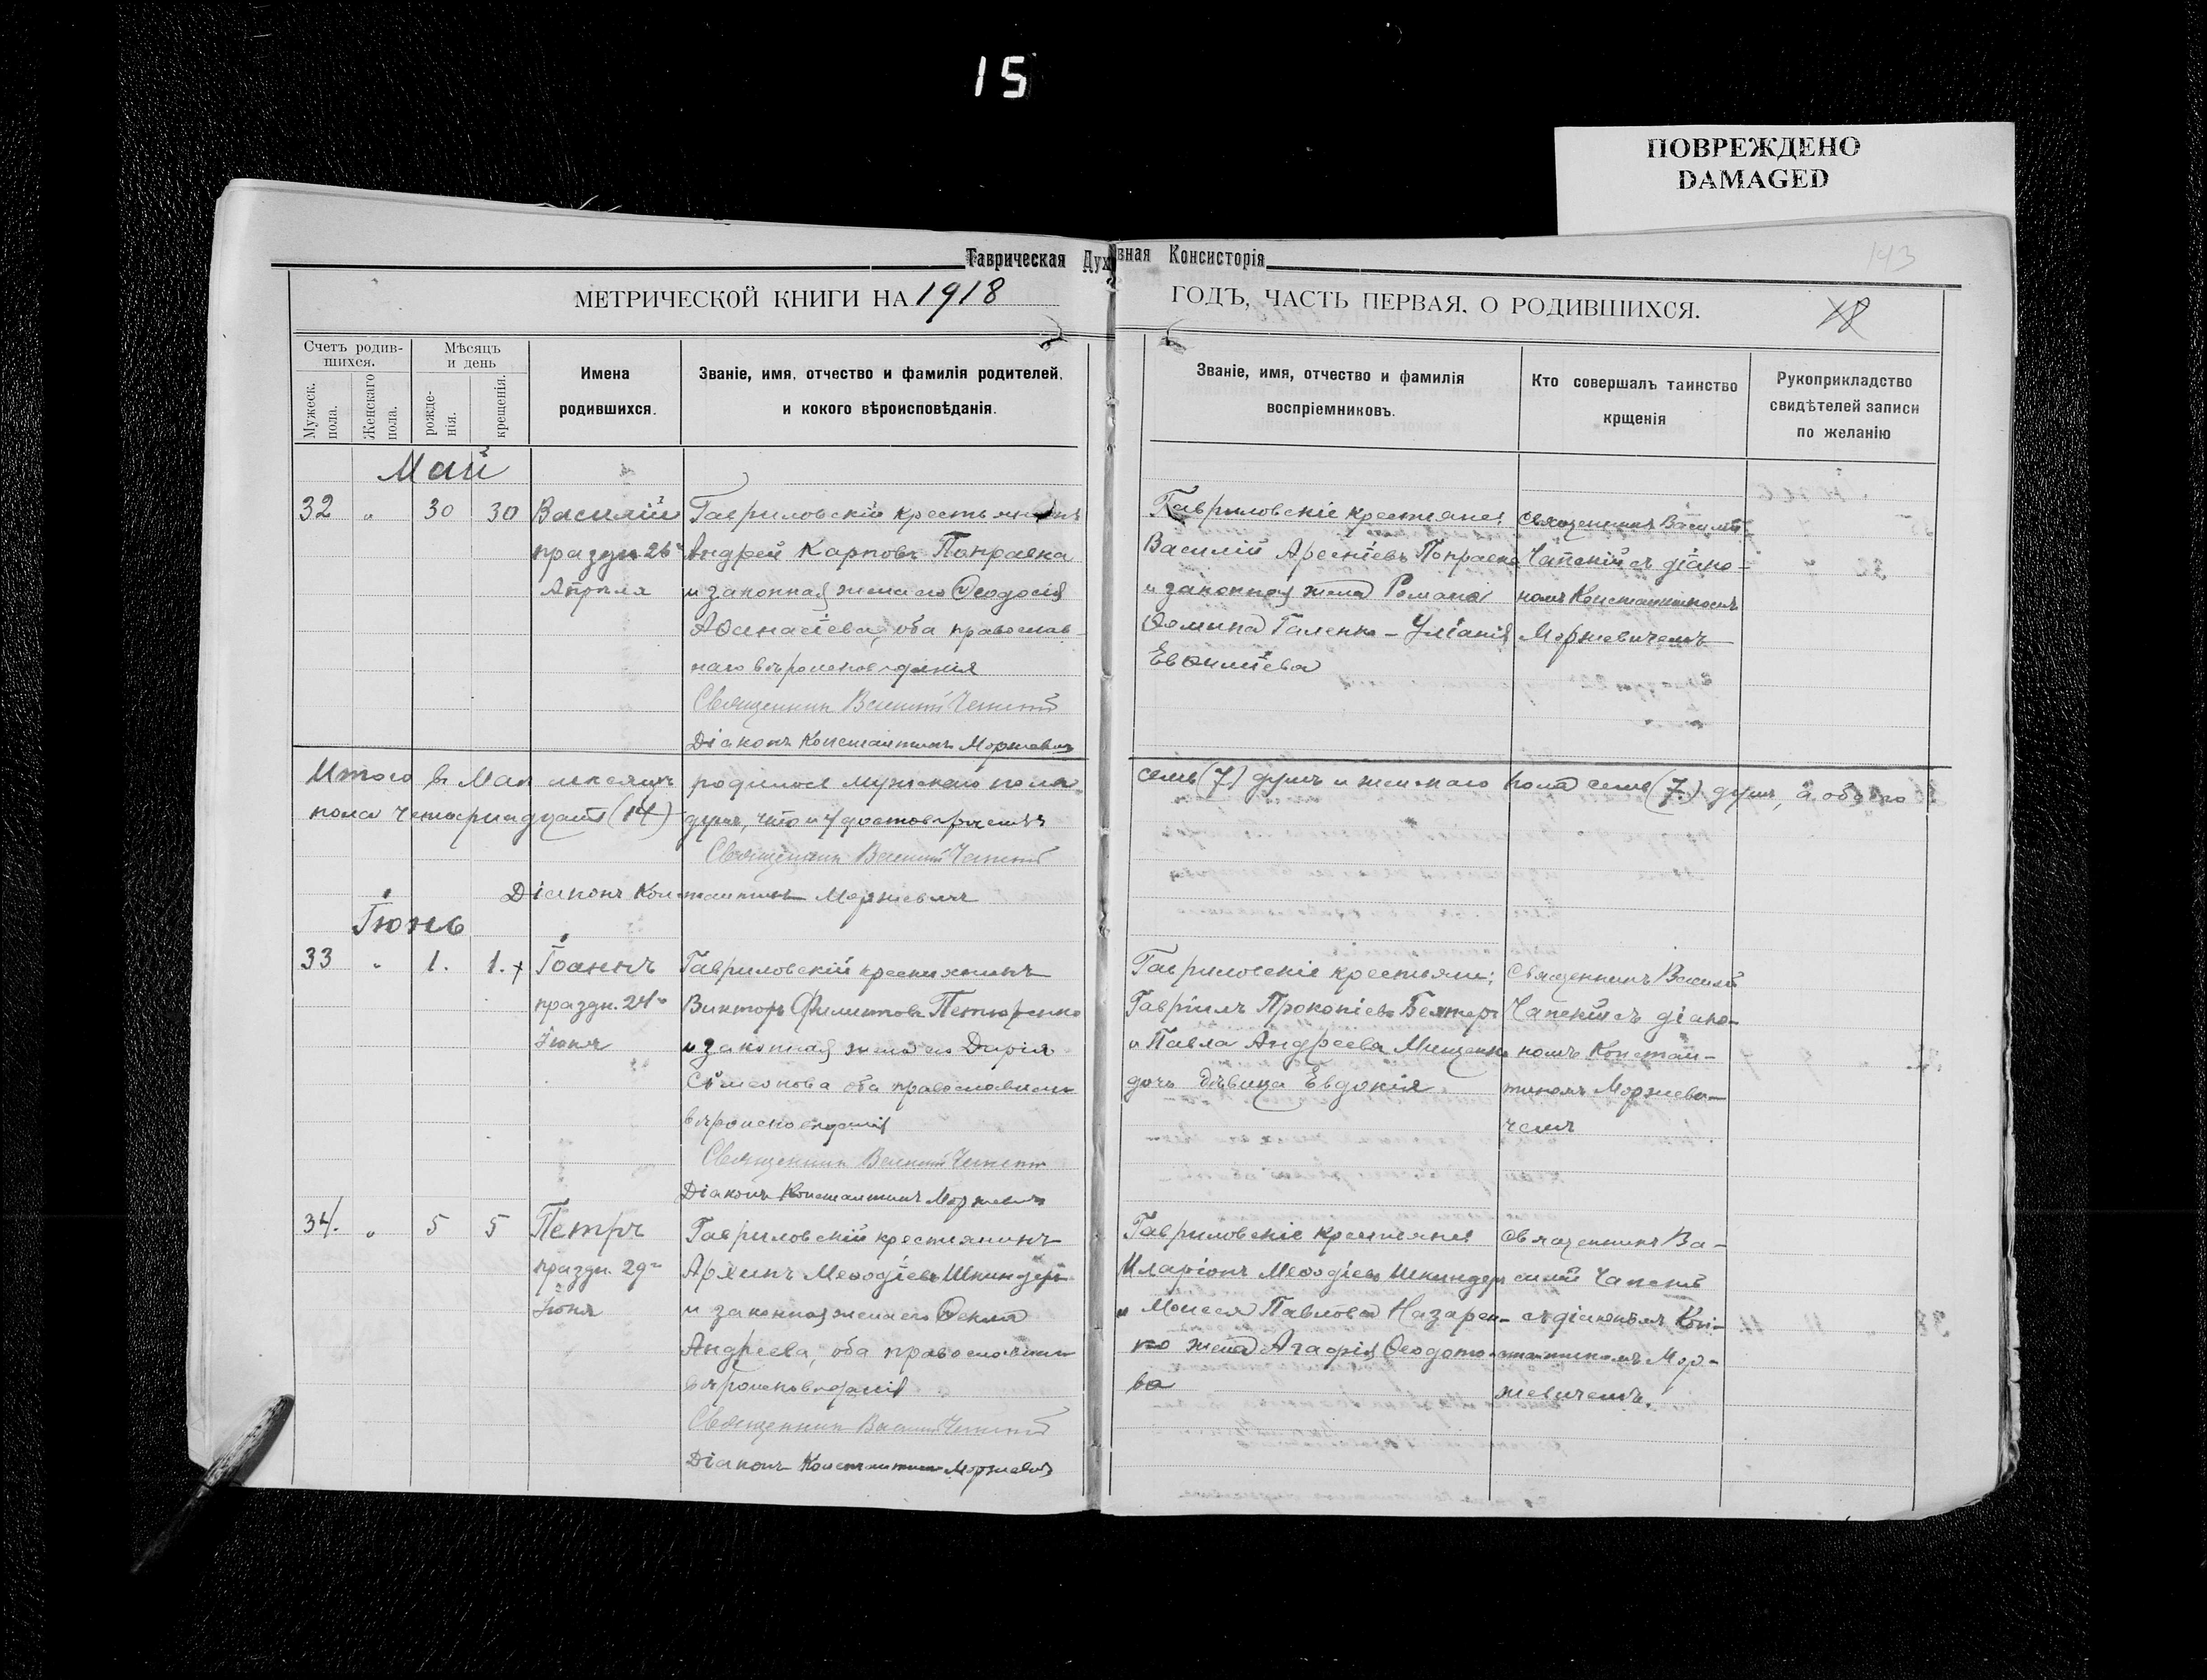 15
ПОВРЕЖДЕНО
DAMAGED
193
Таврическая Духовная Консисторія
МЕТРИЧЕСКОЙ КНИГИ НА 1918 ГОДЪ, ЧАСТЬ ПЕРВАЯ, О РОДИВШИХСЯ.
18
Счетъ родив-
шихся.
Мужеск. пола.
Женскаго пола.
Мѣсяцъ
и день
рожде-
нія.
крещенія.
Имена
родившихся.
Званіе, имя, отчество и фамилія родителей,
и кокого вѣроисповѣданія.
Званіе, имя, отчество и фамилія
воспріемниковъ.
Кто совершалъ таинство
крщенія
Рукоприкладство
свидѣтелей записи
по желанію
Май
32 " 30 30
Василій
праздн. 26го
Апрѣля
Гавриловскій крестьянинъ
Андрей Карповъ Поправка
и законная жена его Ѳеодосія
Аѳанасіева, оба православ-
наго вѣроисповѣданія
Священникъ Василій Чапскій
Діаконъ Константинъ Моржевичъ
Гавриловскіе крестьяне:
Василій Арсеніевъ Поправка
и законная жена Романа
Ѳомина Галенко - Уліанія
Евѳиміева
Священникъ Василій
Чапскій съ діако-
номъ Константиномъ
Моржевичемъ
Итого въ Маѣ мѣсяцѣ родилося мужскаго пола семь (7) душъ и женскаго пола семь (7) душъ, а обоего
пола четырнадцать (14) душъ, что и удостовѣряемъ
Священникъ Василій Чапскій
Діаконъ Константинъ Моржевичъ
Іюнь
33 " 1. 1.
Іоаннъ
праздн. 24го
Іюня
Гавриловскій крестьянинъ
Викторъ Филиповъ Петюренко
и законная жена его Дарія
Сѵмеонова оба православнаго
вѣроисповѣданія
Священникъ Василій Чапскій
Діаконъ Константинъ Моржевичъ
Гавриловскіе крестьяне:
Гавріилъ Прокопіевъ
и Павла Андреева Мищенко
дочь дѣвица Евдокія
Священникъ Василій
Чапскій съ діако-
номъ Констан-
тиномъ Моржеви-
чемъ
34. " 5 5
Петръ
праздн. 29го
Іюня
Гавриловскій крестьянинъ
Архипъ Меѳодіевъ Шкиндеръ
и законная жена его Ѳекла
Андреева, оба православнаго
вѣроисповѣданія
Священникъ Василій Чапскій
Діаконъ Константинъ Моржевичъ
Гавриловскіе крестьяне
Иларіонъ Меѳодіевъ Шкиндеръ
и Моисея Павлова Назарен-
ко жена Агафія Ѳеодото-
ва
Священникъ Ва-
силій Чапскій
съ діакономъ Кон-
стантиномъ Мор-
жевичемъ.